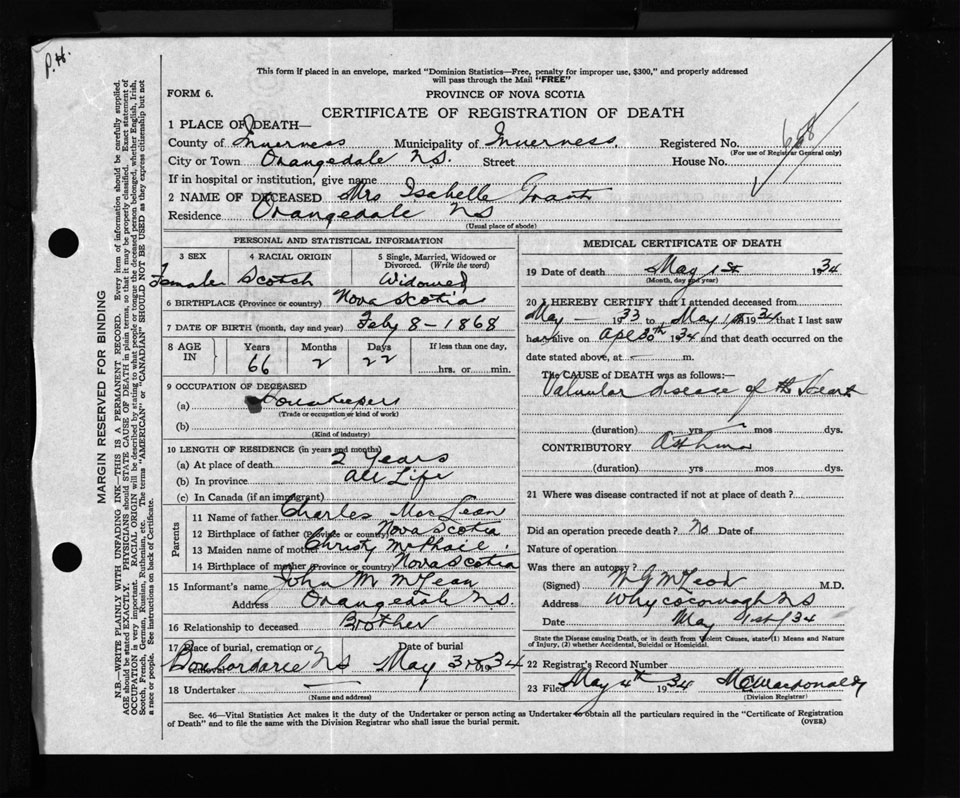 P.H.
This form if placed in an envelope, marked "Dominion Statistics—Free, penalty for improper use, $300," and properly addressed
will pass through the Mail "FREE"
FORM 6.
PROVINCE OF NOVA SCOTIA
CERTIFICATE OF REGISTRATION OF DEATH
1 PLACE OF DEATH—
County of Inverness Municipality of Inverness Registered No.
(For use of Registrar General only)
City or Town Orangedale N.S. Street House No.
If in hospital or institution, give name
2 NAME OF DECEASED Mrs Isabelle Grant
Residence Orangedale NS
(Usual place of abode)
PERSONAL AND STATISTICAL INFORMATION
3 SEX 4 RACIAL ORIGIN 5 Single, Married, Widowed or Divorced. (Write the word)
Female Scotch Widowed
6 BIRTHPLACE (Province or country) Nova Scotia
7 DATE OF BIRTH (month, day and year) Feby 8-1868
8 AGE IN Years Months Days If less than one day,
66 2 22 hrs. or min.
9 OCCUPATION OF DECEASED
(a) Housekeeper
(Trade or occupation or kind of work)
(b)
(Kind of industry)
10 LENGTH OF RESIDENCE (in years and months)
(a) At place of death 2 Years
(b) In province all Life
(c) In Canada (if an immigrant)
Parents
11 Name of father Charles MacLean
12 Birthplace of father (Province or country) Nova Scotia
13 Maiden name of mother Christy McPhail
14 Birthplace of mother (Province or country) Nova Scotia
15 Informant's name John M McLean
Address Orangedale N.S.
16 Relationship to deceased Brother
17 Place of burial, cremation or removal Date of burial
NS May 3rd 1934
18 Undertaker —
(Name and address)
MEDICAL CERTIFICATE OF DEATH
19 Date of death May 1st 1934
(Month, day and year)
20 I HEREBY CERTIFY that I attended deceased from
May — 1933 to May 1st 1934 that I last saw
her alive on Apl 30th 1934 and that death occurred on the
date stated above, at — m.
The CAUSE of DEATH was as follows:—
Valvular Disease of the Heart
(duration) yrs mos dys.
CONTRIBUTORY Asthma
(duration) yrs mos dys.
21 Where was disease contracted if not at place of death?
Did an operation precede death? No Date of
Nature of operation
Was there an autopsy?
(Signed) M G McLeod M.D.
Address Whycocomagh NS
Date May 1st/34
State the Disease causing Death, or in death from Violent Causes, state (1) Means and Nature
of Injury, (2) whether Accidental, Suicidal or Homicidal.
22 Registrar's Record Number
23 Filed May 4th 1934
(Division Registrar)
Sec. 46—Vital Statistics Act makes it the duty of the Undertaker or person acting as Undertaker to obtain all the particulars required in the "Certificate of Registration
of Death" and to file the same with the Division Registrar who shall issue the burial permit.
(OVER)
MARGIN RESERVED FOR BINDING
N.B.—WRITE PLAINLY WITH UNFADING INK—THIS IS A PERMANENT RECORD. Every item of information should be carefully supplied.
AGE should be stated EXACTLY. PHYSICIANS should STATE CAUSE OF DEATH in plain terms, so that it may be properly classified. Exact statement of
OCCUPATION is very important. RACIAL ORIGIN will be described by stating to what people or tongue the deceased person belonged, whether English, Irish,
Scotch, French, German, Russian, Ruthenian, etc. The terms "AMERICAN" or "CANADIAN" SHOULD NOT BE USED as they express citizenship but not
a race or people. See instructions on back of Certificate.